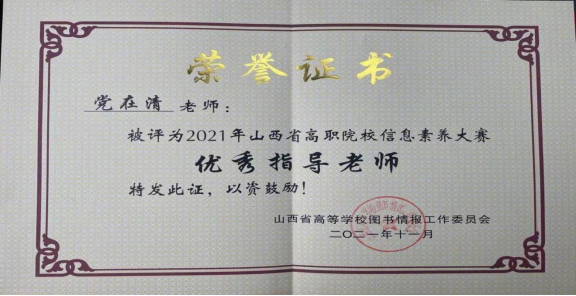 荣誉证书
党在清 老师：
被评为2021年山西省高职院校信息素养大赛
优秀指导老师
特发此证，以资鼓励！
山西省高等学校图书情报工作委员会
二〇二一年十一月